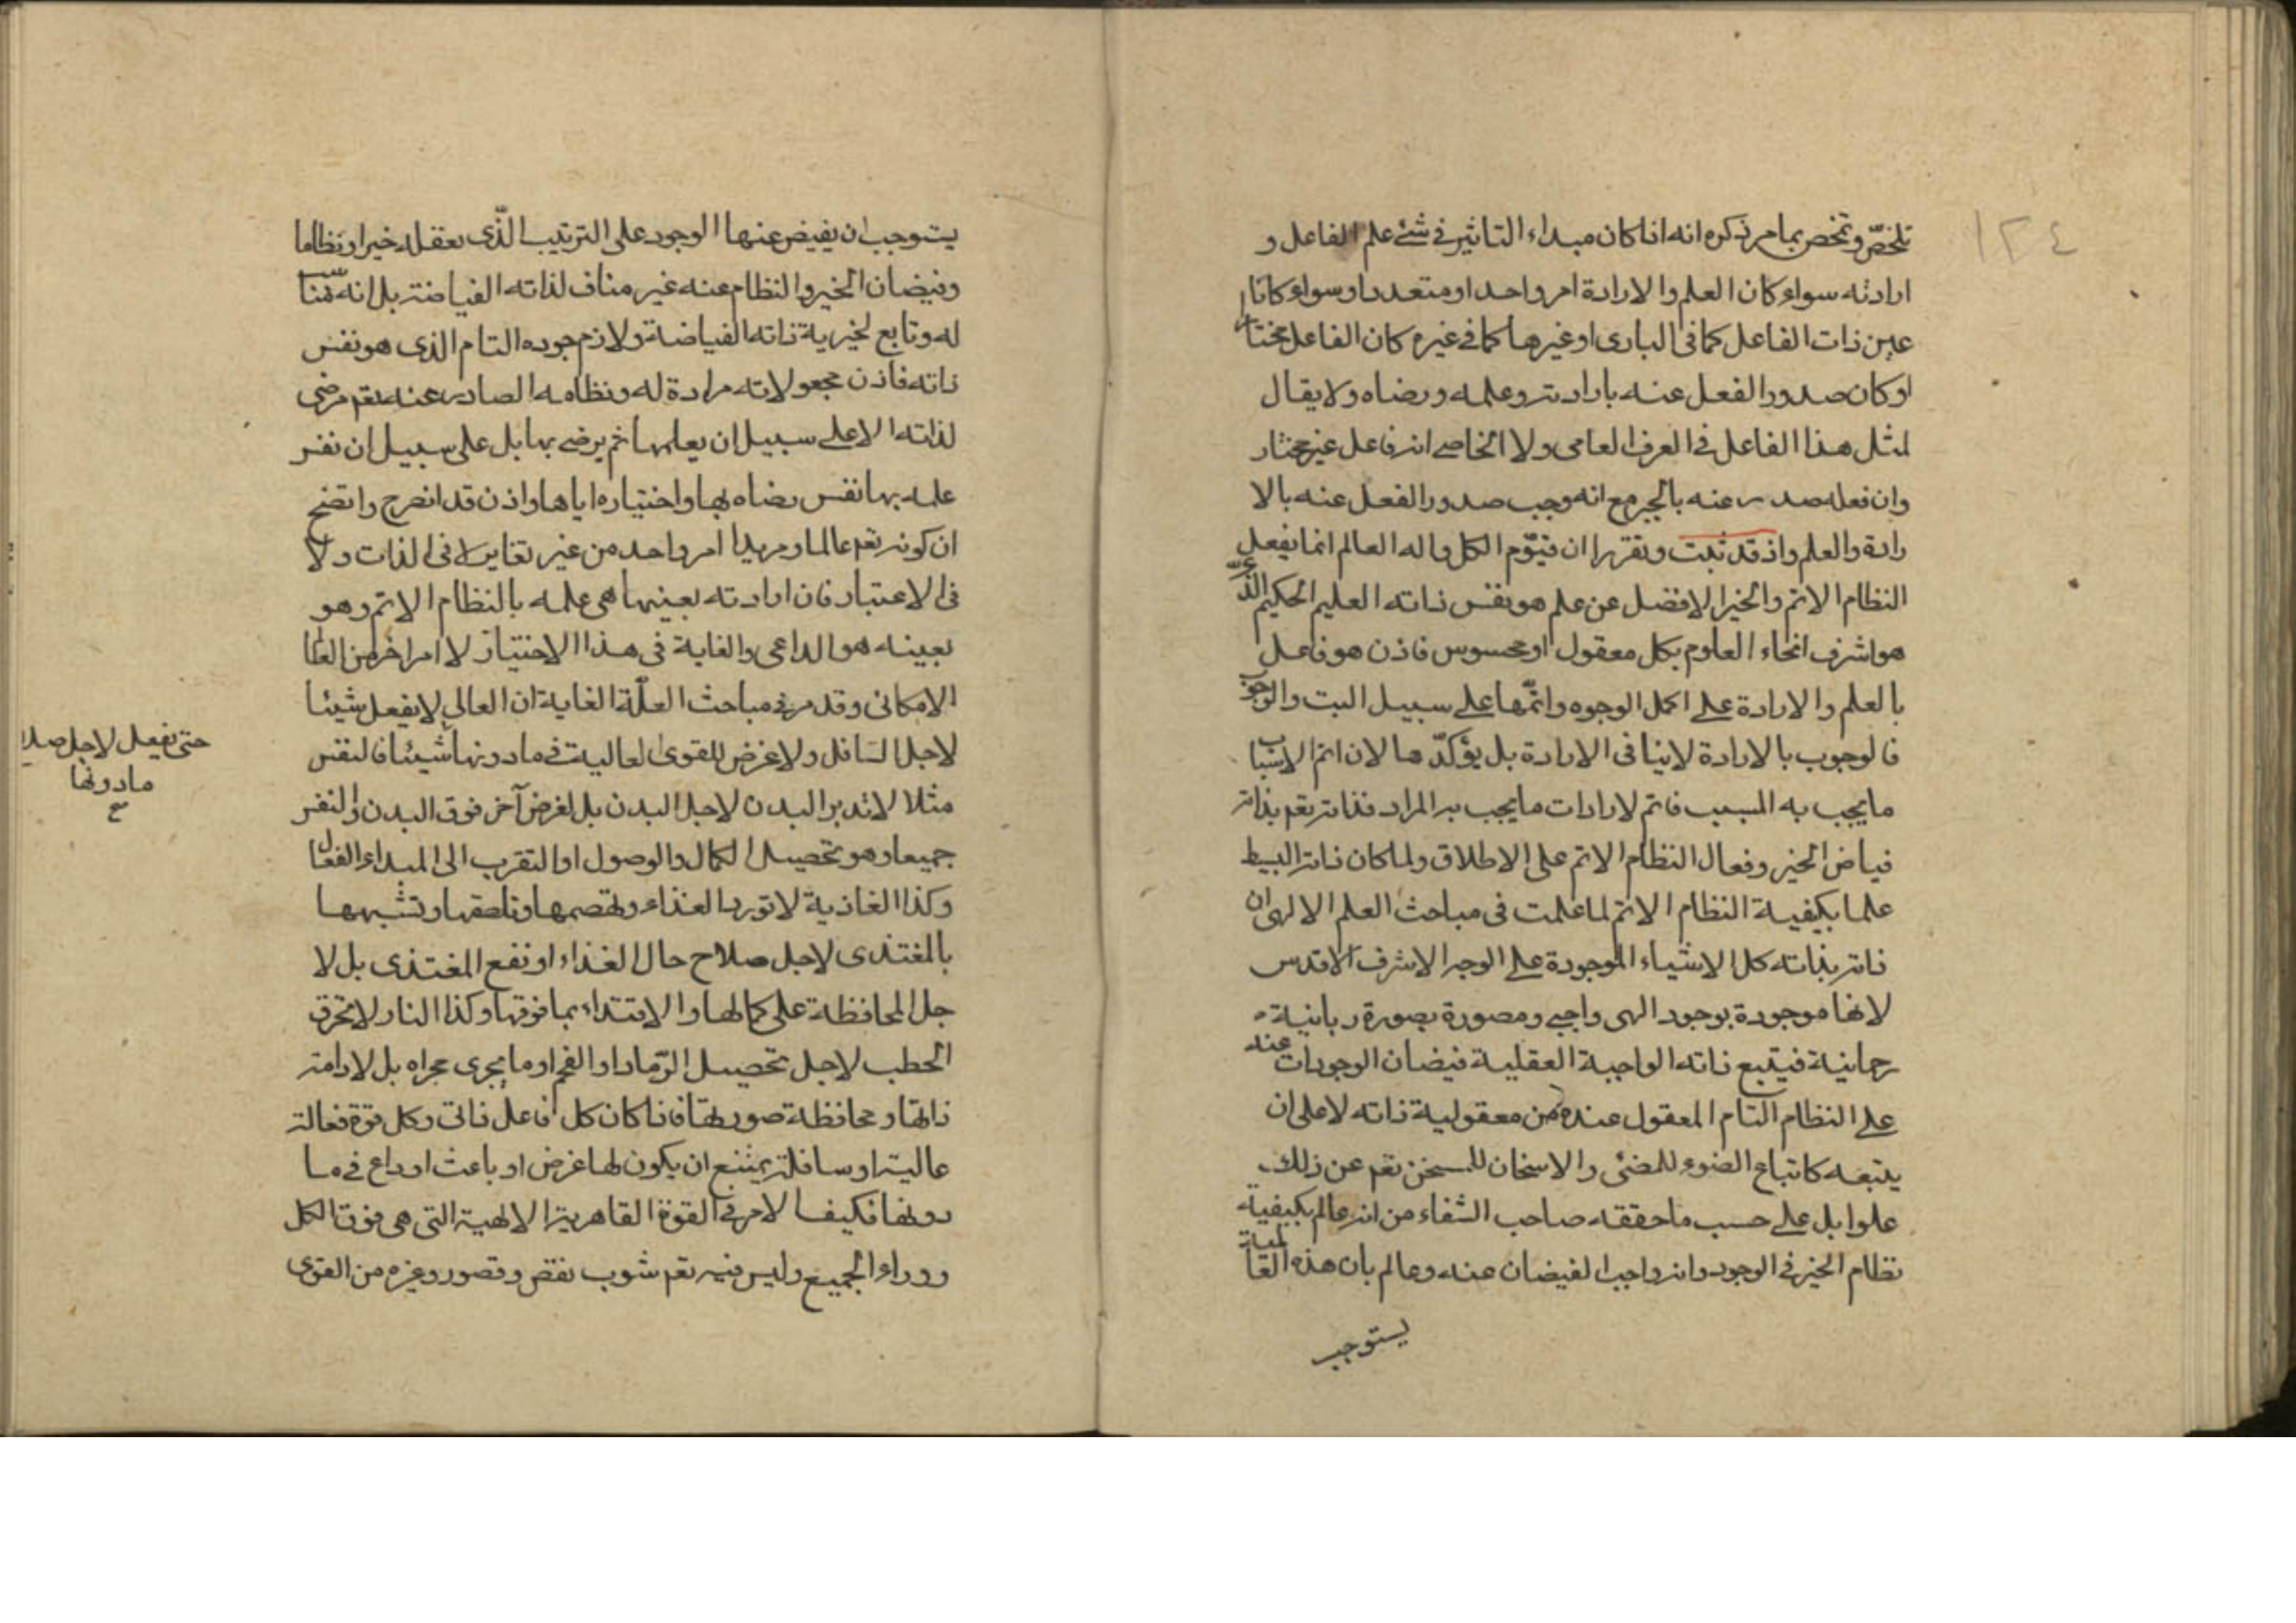 ١٢٤
تلخّص وتمخص بما مر ذكره انه اذا كان مبداء التاثير فى شئ علم الفاعل و
ارادته سواء كان العلم والارادة امر واحد او متعدد او سواء كانا
عين ذات الفاعل كما فى البارى او غيرها كما فى غيره كان الفاعل مختارا
او كان صدور الفعل عنه بارادته وعلمه ورضاه ولا يقال
لمثل هذا الفاعل فى العرف العامى ولا الخاصى انه فاعل غير مختار
وان فعله صدر عنه بالجبر مع انه وجب صدور الفعل عنه بالا
رادة والعلم واذ قد ثبت وتقرر ان قيّوم الكل واله العالم انما يفعل
النظام الاتم والخير الافضل عن علم هو نفس ذاته العليم الحكيم الذى
هو اشرف انحاء العلوم بكل معقول او محسوس فاذن هو فاعل
بالعلم والارادة على اكمل الوجوه واتمّها على سبيل البت والوجوب
فالوجوب بالارادة لا ينافى الارادة بل يؤكدّها لان اتم الاسباب
ما يجب به المسبب فاتم الارادات ما يجب به المراد فذاته تعم بذاته
فياض الخير وفعال النظام الاتم على الاطلاق ولما كان ذاته البسيط
علما بكيفية النظام الاتم لما علمت فى مباحث العلم الالهى ان
ذاته بذاته كل الاشياء الموجودة على الوجه الاشرف الاقدس
لانها موجودة بوجود الهى واجبى ومصورة بصورة ربانية
رحمانية فيتبع ذاته الواجبة العقلية فيضان الوجودات عنه
على النظام التام المعقول عنده من معقولية ذاته لا على ان
يتبعه كاتباع الضوء للمضئى والاسخان للمسخن تعم عن ذلك
علوا بل على حسب ما حققه صاحب الشفاء من انه عالم بكيفية
نظام الخير فى الوجود وانه واجب الفيضان عنه وعالم بان هذه العالمية
يستوجب
يستوجب ان يفيض عنها الوجود على الترتيب الذّى يعقله خيرا ونظاما
وفيضان الخير والنظام عنه غير مناف لذاته الفياضة بل انه مناسب
له وتابع لخيرية ذاته الفياضة ولازم جوده التام الذى هو نفس
ذاته فاذن مجعولاته مرادة له ونظامه الصادر عنه تعم مرضى
لذاته لا على سبيل ان يعلمها ثم يرضى بها بل على سبيل ان نفس
علمه بها نفس رضاه بها واختياره اياها واذن قد انصرح واتضح
ان كونه تعم عالما ومريدا امر واحد من غير تغاير لا فى الذات ولا
فى الاعتبار فان ارادته بعينها هى علمه بالنظام الاتم وهو
بعينه هو الداعى والغاية فى هذا الاختيار لا امر اخر من العالم
الامكانى وقد مر فى مباحث العلّة الغاية ان العالى لا يفعل شيئا
لاجل السافل ولا غرض للقوى العالية فى ما دونها شيئا فالنفس
حتى يفعل لاجل صد
ما دونها
مثلا لا تدبر البدن لاجل البدن بل لغرض آخر فوق البدن والنفس
جميعا وهو تحصيل الكمال والوصول او التقرب الى المبداء الفعال
وكذا الغاذية لا تورد الغذاء وتهضمها وتلصقها وتشبهها
بالمغتذى لاجل صلاح حال الغذاء او نفع المغتذى بل لا
جل المحافظة على كمالها والاقتداء بما فوقها وكذا النار لا تحرق
الحطب لاجل تحصيل الرّماد او الفحم او ما يجرى مجراه بل لادامة
ذاتها ومحافظة صورتها فاذا كان كل فاعل ذاتى وكل قوة فعالة
عالية او سافلة يمتنع ان يكون لها غرض او باعث او داع فى ما
دونها فكيف الامر فى القوة القاهرية الالهية التى هى فوق الكل
ووراء الجميع وليس فيه تعم شوب نقص وقصور وغيره من القوى